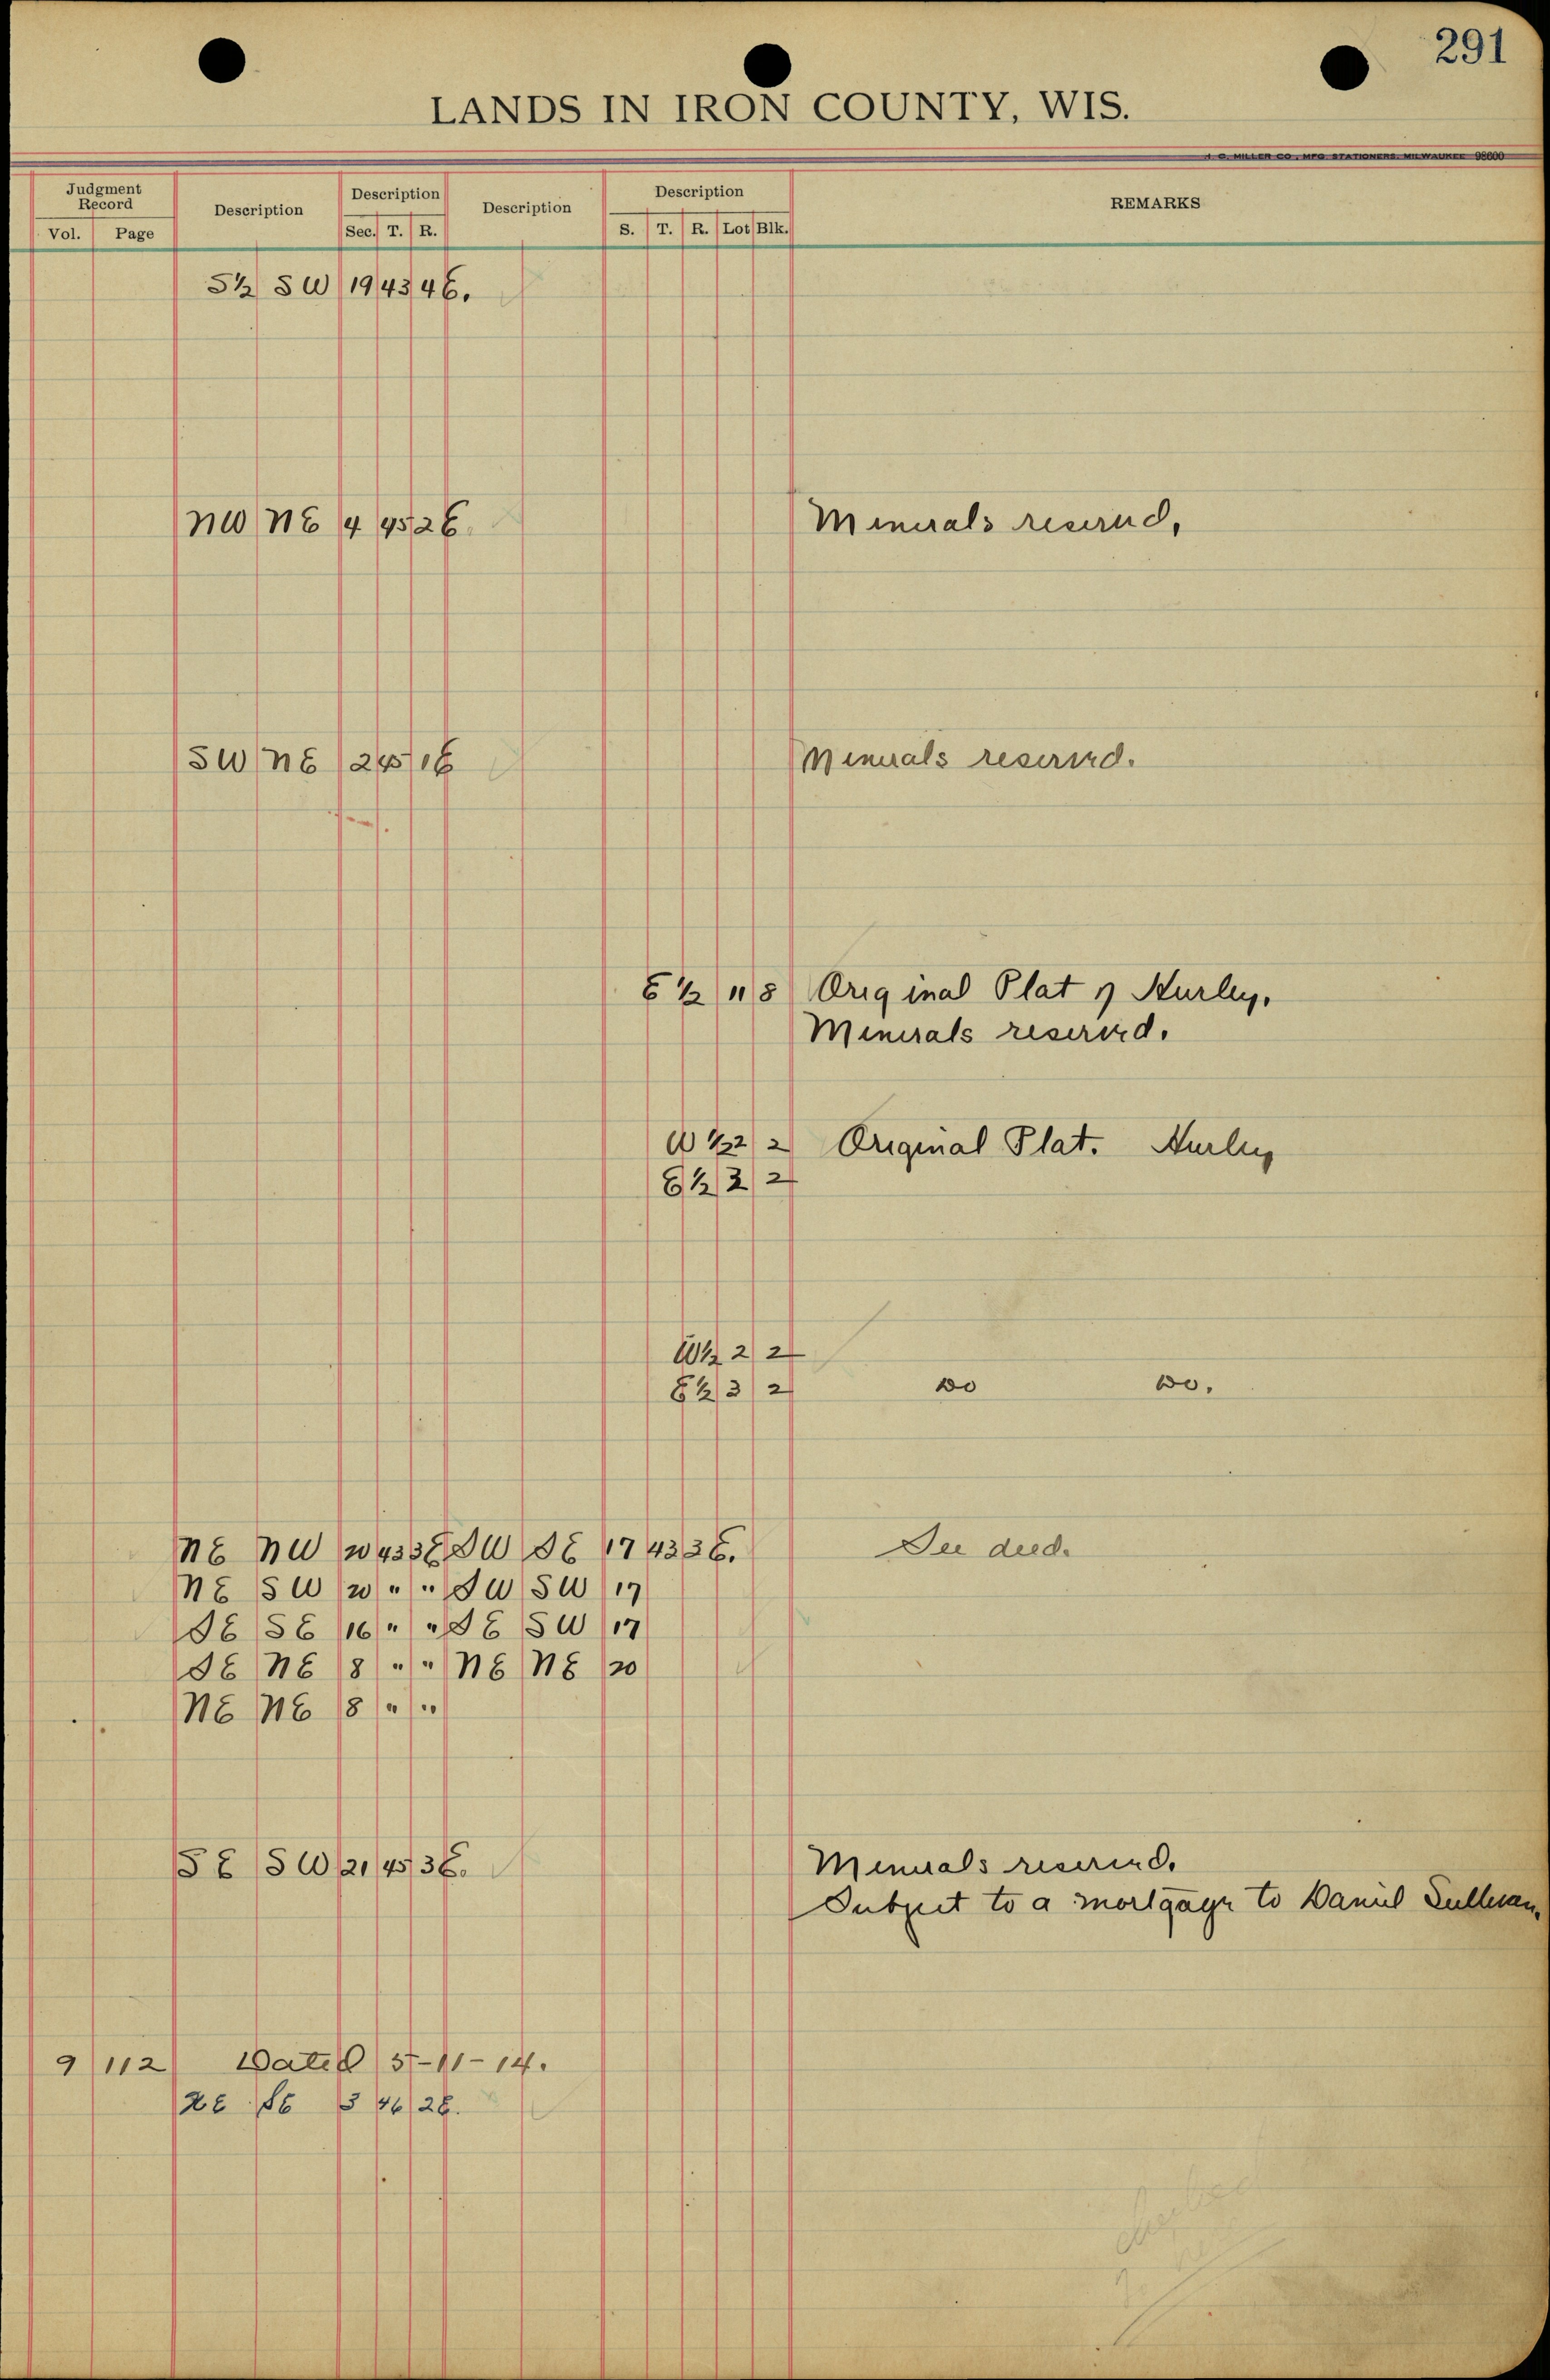 291
LANDS IN IRON COUNTY, WIS.
H. C. MILLER CO., MFG. STATIONERS, MILWAUKEE 98600
Judgment Record Description Description Description Description REMARKS
Vol. Page Sec. T. R. S. T. R. Lot Blk.
S½ SW 19 43 4E.
NW NE 4 45 2E. Minerals reserved.
SW NE 2 45 1E Minerals reserved.
E½ 11 8 Original Plat of Hurley.
Minerals reserved.
W½ 2 2 Original Plat. Hurley
E½ 3 2
W½ 2 2
E½ 3 2 Do Do.
NE NW 20 43 3E SW SE 17 43 3E. See deed.
NE SW 20 " " SW SW 17
SE SE 16 " " SE SW 17
SE NE 8 " " NE NE 20
NE NE 8 " "
SE SW 21 45 3E. Minerals reserved.
Subject to a mortgage to Daniel Sullivan.
9 112 Dated 5-11-14.
SE 3 46 2E.